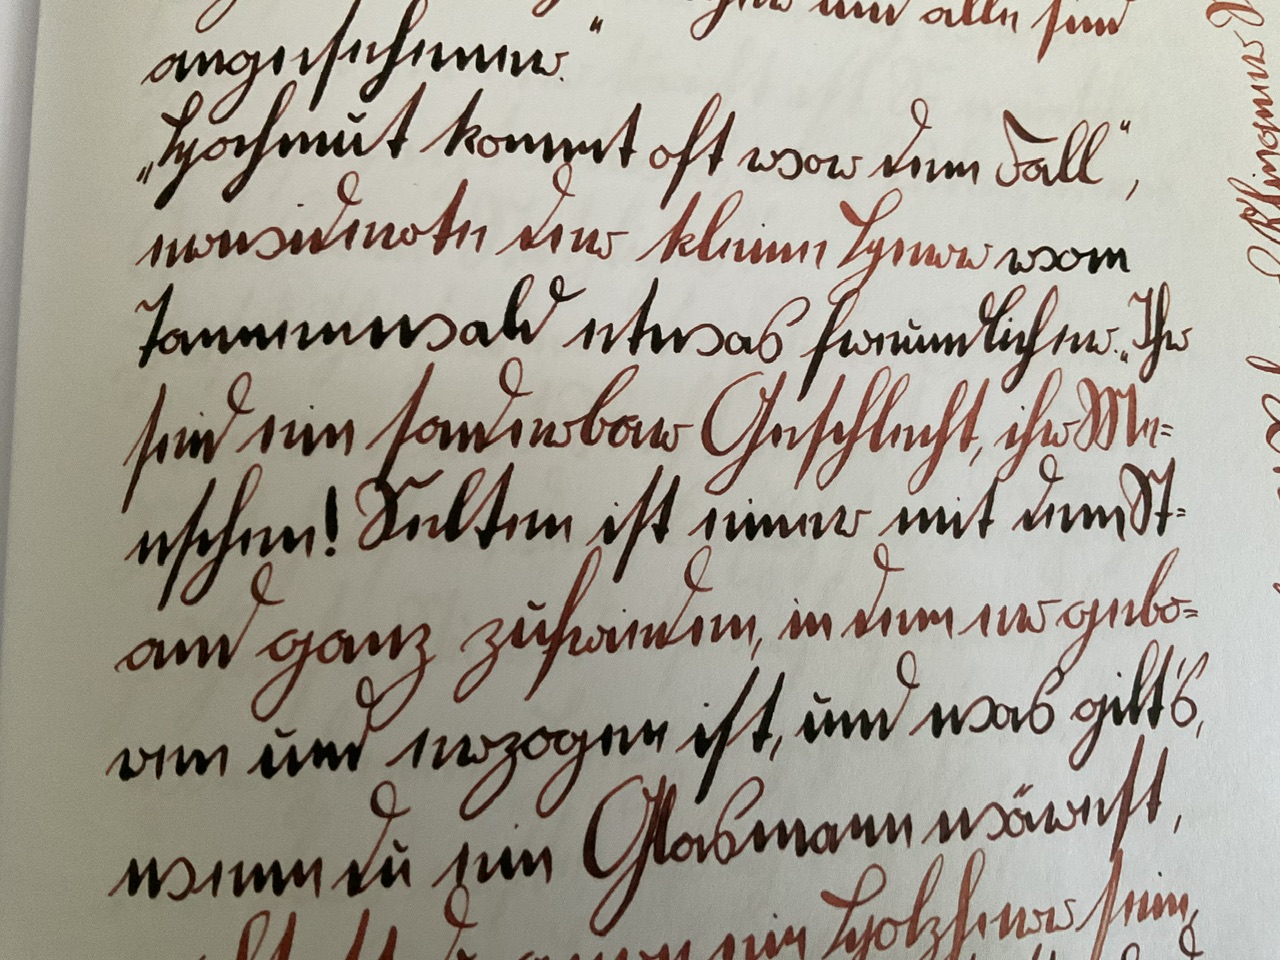 und alle sind
angesehener."
„Hochmut kommt oft vor dem Fall",
erwiderte der kleine Herr vom
Tannenwald etwas freundlicher. „Ihr
seid ein sonderbar Geschlecht, ihr Me-
nschen! Selten ist einer mit dem St-
and ganz zufrieden, in dem er gebo-
ren und erzogen ist, und was gilt's,
wenn du ein Glasmann wärest,
gern ein Holzherr sein,